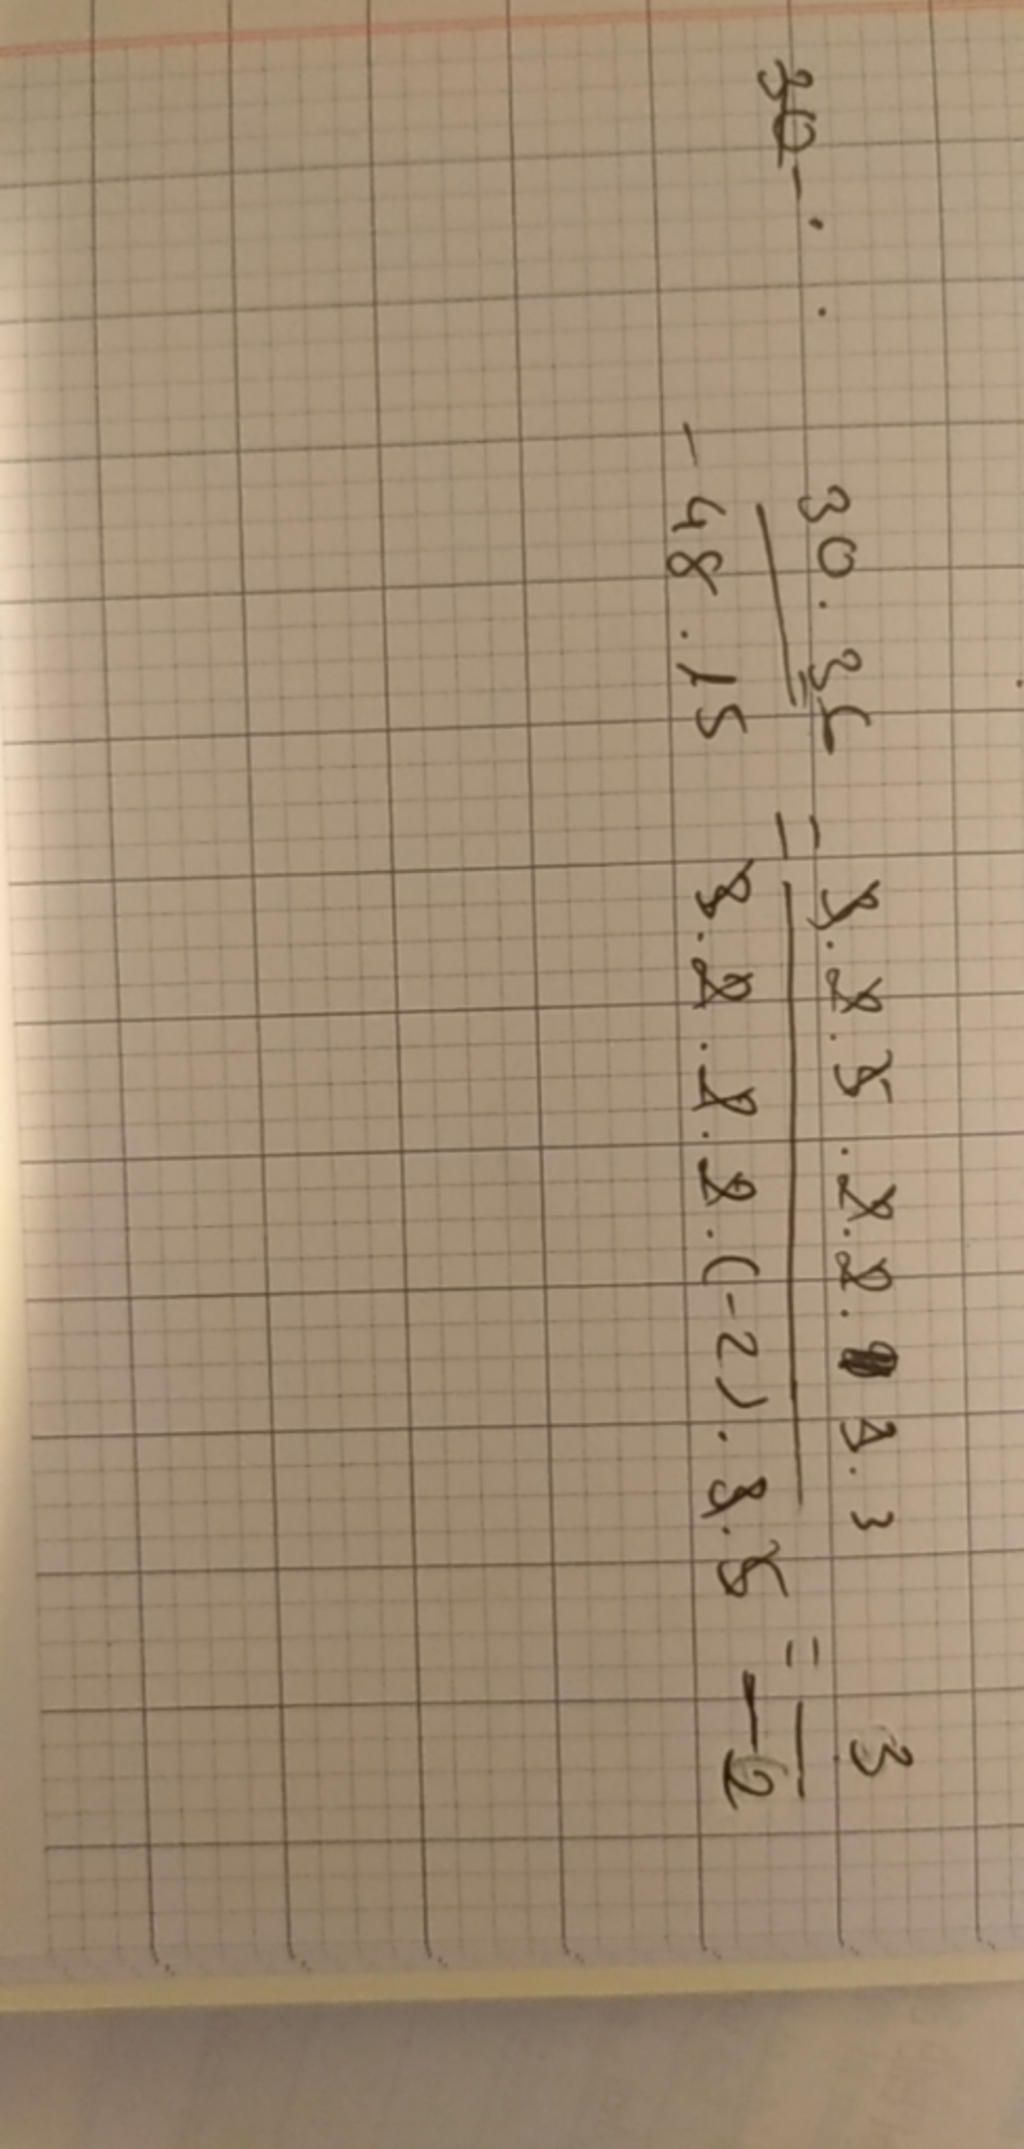 30 - . .
30 . 36 / - 48 . 15 = 3 . 2 . 5 . 2 . 2 . 3 . 3 / 3 . 2 . 2 . 2 . (-2) . 3 . 5 = 3 / -2